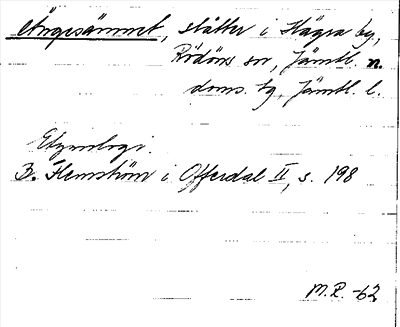 Ängesämnet, slåtter i Hägra by,
Rödöns sn, Jämtl. n.
doms. tg, Jämtl. l.
Etymologi.
B. Flemström i Offerdal II, s. 198
M.R. -62